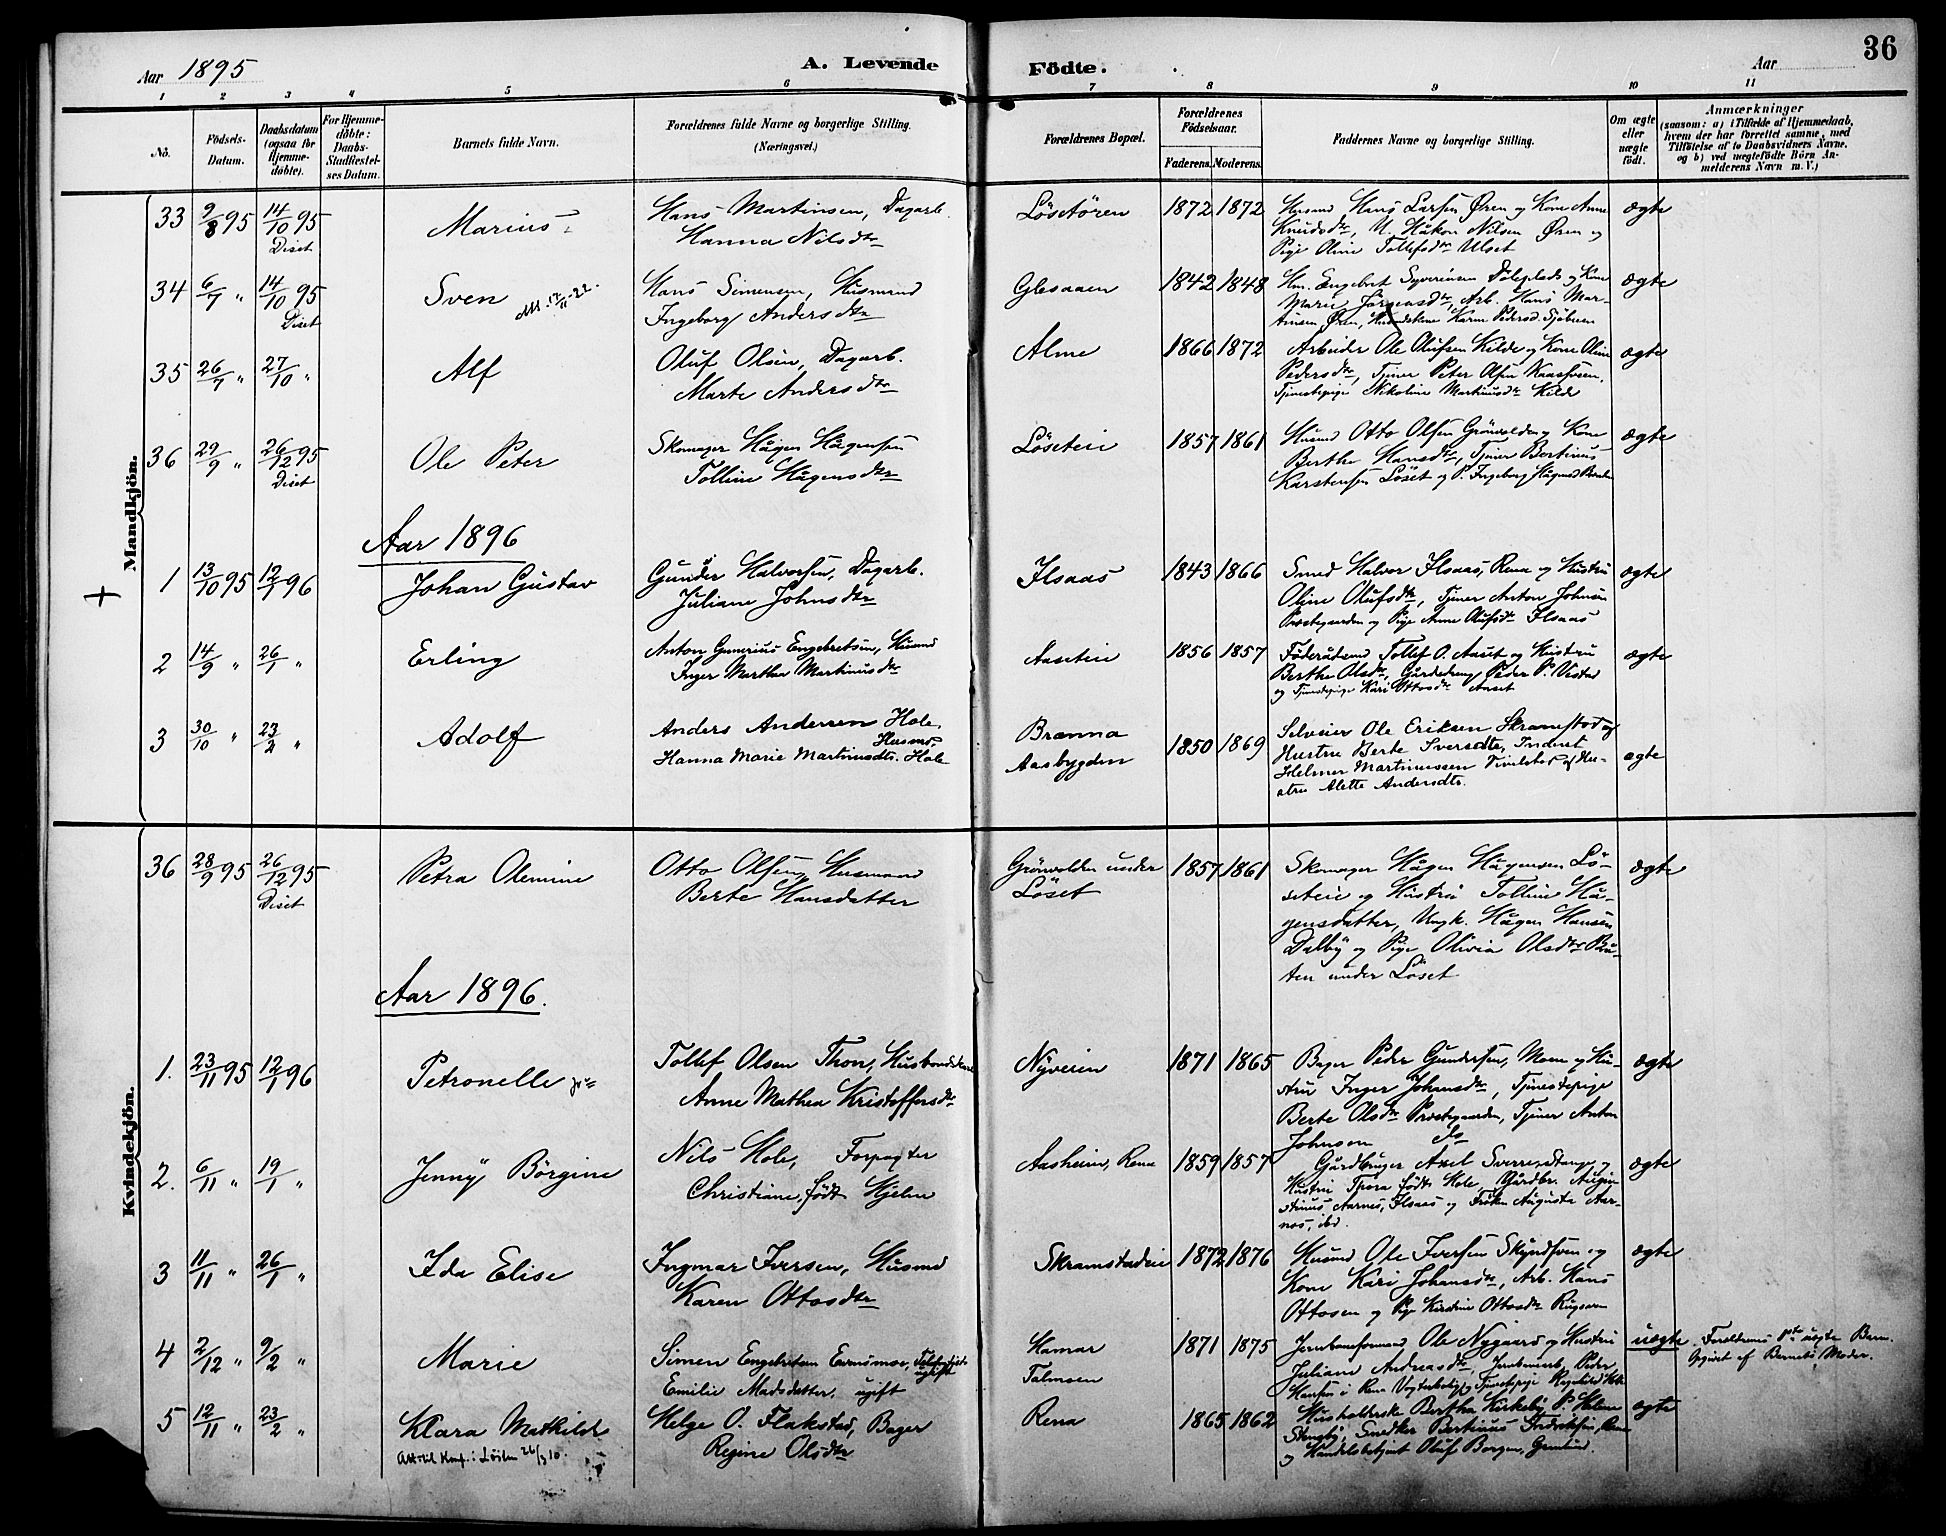 Aar 1895
A. Levende Födte.
Aar
36
1 2 3 4 5 6 7 8 9 10 11
No.
Födsels-Datum.
Daabsdatum (ogsaa for Hjemme-döbte).
For Hjemme-döbte: Daabs-Stadfæstel-ses Datum.
Barnets fulde Navn.
Forældrenes fulde Navne og borgerlige Stilling.
(Næringsvei.)
Forældrenes Bopæl.
Forældrenes Födselsaar.
Faderens. Moderens.
Faddernes Navne og borgerlige Stilling.
Om ægte eller uægte födt.
Anmærkninger
(saasom: a) i Tilfælde af Hjemmedaab,
hvem der har forrettet samme, med
Tilföielse af to Daabsvidners Navne.
og b) ved uægtefödte Börn An-
melderens Navn m. V.)
Mandkjön.
33 9/8 95 14/10 95 Diset Marius
Hans Martinsen, Dagarb.
Hanna Nilsdtr
Lösetören 1872 1872
Husmd Hans Larsen Øren og Kone Anne
Knudsdtr, U. Håkon Nilsen Øren og
Pige Oline Tollefsdtr Ulset
ægte
34 6/7 " 14/10 95 Diset Sven
Hans Simensen, Husmand
Ingeborg Andersdtr
Glesaaen 1842 1848
Hm. Engebret Syversen Döleplads og Kone
Marie Jörgensdtr, Arb. Hans Mar-
tinsen Øren, Husmdskone Karen Pedersd.
ægte
35 26/7 " 27/10 " Alf
Oluf Olsen, Dagarb.
Marte Andersdtr
Alme 1866 1872
Arbeider Ole Olufsen Kilde og Kone Oline
Pedersdtr, Tjener Peter Olsen
Tjenestepige Nikoline Martinusdtr Kilde
ægte
36 29/9 " 26/12 95 Diset Ole Peter
Skomager Hågen Hågensen
Tolline Hågensdtr
Löseteie 1857 1861
Husmd Otto Olsen Grönvolden og Kone
Berthe Hansdtr, Tjener Bertinus
Karstensen Löset og P. Ingeborg Hågensd
ægte
Aar 1896
1 13/10 95 12/1 96 Johan Gustav
Gunder Halvorsen, Dagarb.
Juliane Johnsdtr
Ilsaas 1843 1866
Smed Halvor Ilsaas, Rena og Hustru
Oline Olufsdtr, Tjener Anton Johnsen
Præstegaarden og Pige Anne Olufsdtr Ilsaas
ægte
2 14/9 " 26/1 " Erling
Anton Gunerius Engebretsen, Husmd
Inger Marthea Martinusdtr
Aaseteie 1856 1857
Föderådsmd Tollef O. Aaset og Hustru
Berthe Olsdtr, Gårdedreng Peder P. Vestad
og Tjenestepige Kari Ottosdtr Aaset
ægte
3 30/10 " 23/2 " Adolf
Anders Andersen Hole, Husmd.
Hanna Marie Martinusdtr. Hole
Brænna
Aasbygden
1850 1869
Selveier Ole Eriksen Skramstad og
Hustru Berte Sversdtr, Inderst
Helmer Martinussen Tivelstad og Hu-
stru Alette Andersdtr.
ægte
Kvindekjön.
36 28/9 95 26/12 95 Diset Petra Olemine
Otto Olsen, Husmand
Berte Hansdatter
Grönvolden under
Löset
1857 1861
Skomager Hågen Hågensen Lö-
seteie og Hustru Tolline Hå-
gensdatter, Ungk. Hågen Hansen
Dalby og Pige Olivia Olsdtr
under Löset
ægte
Aar 1896.
1. 23/11 95 12/1 96 Petronelle
Tollef Olsen Thon,
Anne Mathea Kristoffersdtr
Nyveien 1871 1865
Bager Peder Gundersen, Moen og Hu-
stru Inger Johansdtr, Tjenestepige
Berte Olsdtr Præstegaarden, Tjener Anton
Johnsen ds
ægte
2. 6/11 " 19/1 " Jenny Börgine
Nils Hole, Forpagter
Christiane, född Hjelm
Aasheim, Rena 1859 1857
Gårdbruger Axel Sverre, Stange, og
Hustru Thora född Hole, Gårdbr. Augu-
stinus Aarnes, Ilsaas og Fröken Augusta Aar-
nes, ibd.
ægte
3 11/11 " 26/1 " Ida Elise
Ingmar Iversen, Husmd
Karen Ottosdtr
Skramstadeie 1872 1876
Husmd Ole Iversen Skyndsven og
Kone Kari Johansdtr, Arb. Hans
Ottosen og Pige Kirstine Ottosdtr
ægte
4 2/12 " 9/2 " Marie
Simen Engebretsen Evensmoe, ugift
Emilie Madsdatter, ugift
Hamar
1871 1875
Jernbaneformand Ole Nygaard og Hustru
Juliane Andreasdtr, Jernbanearb. Peder
Hansen, Rena og Tjenestepige Ragnhild
uægte
Forældrenes 1ste uægte Barn.
Opgivet af Barnets Moder.
5 12/11 " 23/2 " Klara Mathilde
Helge O. Flakstad, Bager
Regine Olsdtr
Rena 1865 1862
Husholderske Bertha Kirkeby P. Helene
Stengby, Snedker Bertinus Fredriksen, Rena
og Handelsbetjent Oluf Borgen,
ægte